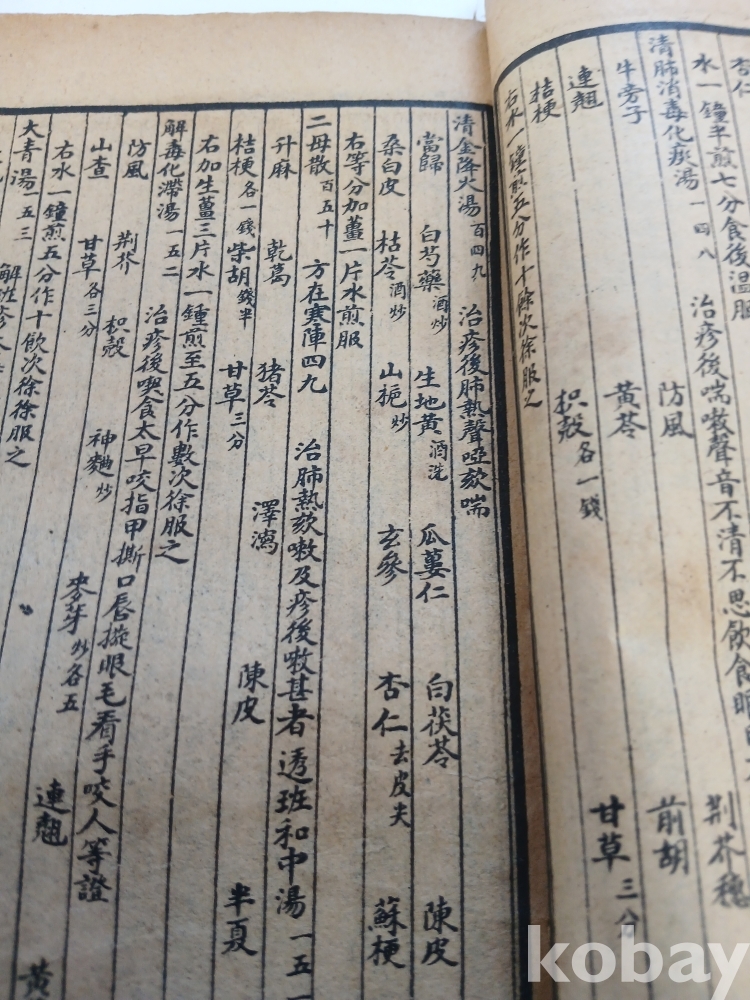 杏仁
水一鐘半煎七分食後溫服
清肺消毒化痰湯 一四八 治疹後喘嗽聲音不清不思飲食眼
牛旁子 防風 荊芥穗
連翹 黃芩 前胡
桔梗 枳殼各一錢 甘草三分
右水一鐘煎五分作十餘次徐服之
清金降火湯 百四九 治疹後肺熱聲啞欬喘
當歸 白芍藥酒炒 生地黃酒洗 瓜蔞仁 白茯苓 陳皮
桑白皮 枯芩酒炒 山梔炒 玄參 杏仁去皮尖 蘇梗
右等分加薑一片水煎服
二母散 百五十 方在寒陣四九 治肺熱欬嗽及疹後嗽甚者 透班和中湯 一五一
升麻 乾葛 猪苓 澤瀉 陳皮 半夏
桔梗各一錢 柴胡錢半 甘草三分
右加生薑三片水一鍾煎至五分作數次徐服之
解毒化滯湯 一五二 治疹後喫食太早咬指甲撕口唇撏眼毛看手咬人等證
防風 荊芥 枳殼 神麯炒 麥芽炒各五 連翹 黃
山查 甘草各三分
右水一鐘煎五分作十飲次徐徐服之
大青湯 一五三 解班疹
kobay